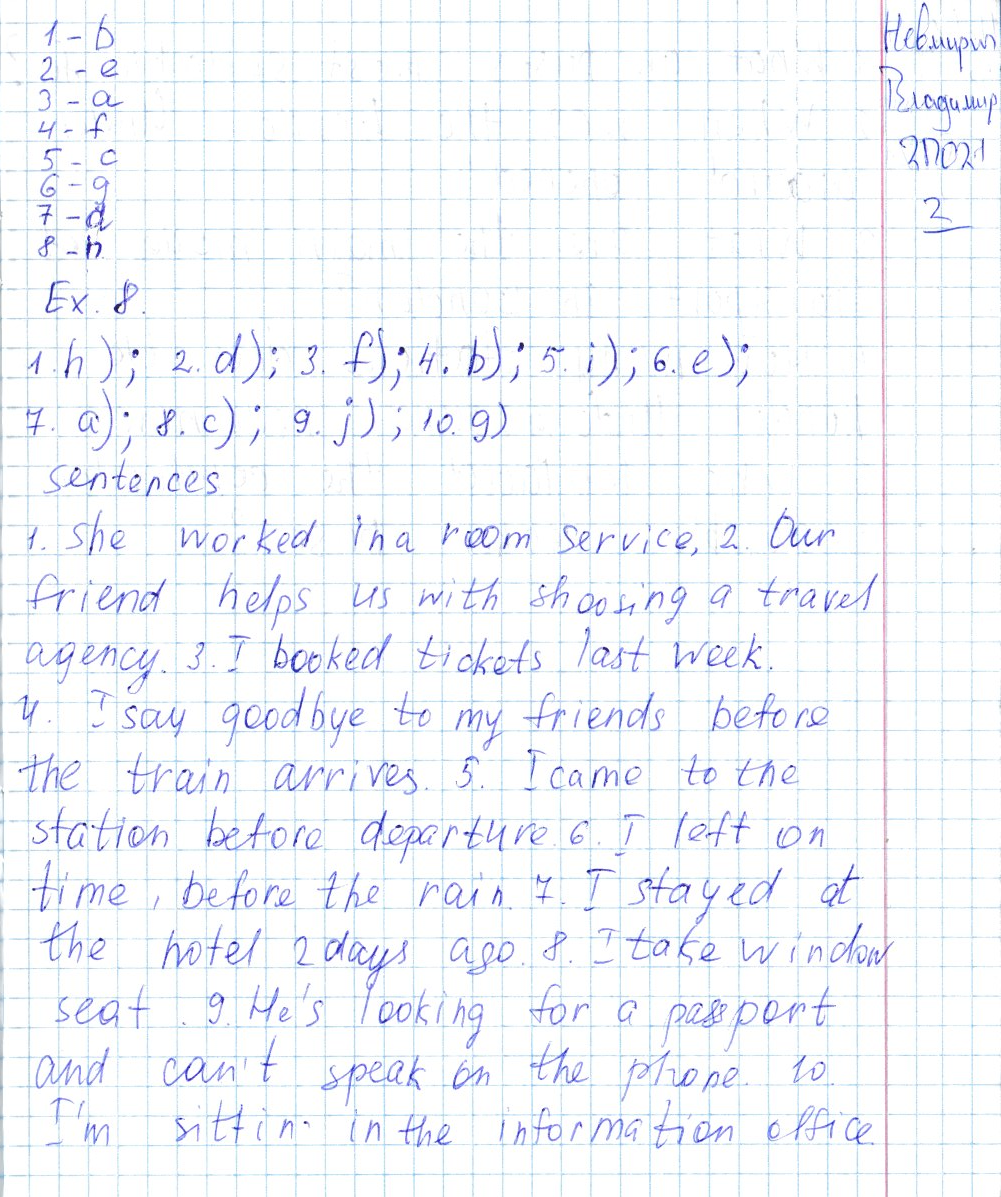 1 - b
2 - e
3 - a
4 - f
5 - c
6 - g
7 - d
8 - h
Ex. 8.
1. h); 2. d); 3. f); 4. b); 5. i); 6. e);
7. a); 8. c); 9. j); 10. g)
sentences
1. She worked in a room service, 2. Our
friend helps us with shoosing a travel
agency. 3. I booked tickets last week.
4. I say goodbye to my friends before
the train arrives. 5. I came to the
station before departure. 6. I left on
time, before the rain. 7. I stayed at
the hotel 2 days ago. 8. I take window
seat. 9. He's looking for a passport
and can't speak on the phone. 10.
I'm sittin in the information office
Владимир
2П021
2